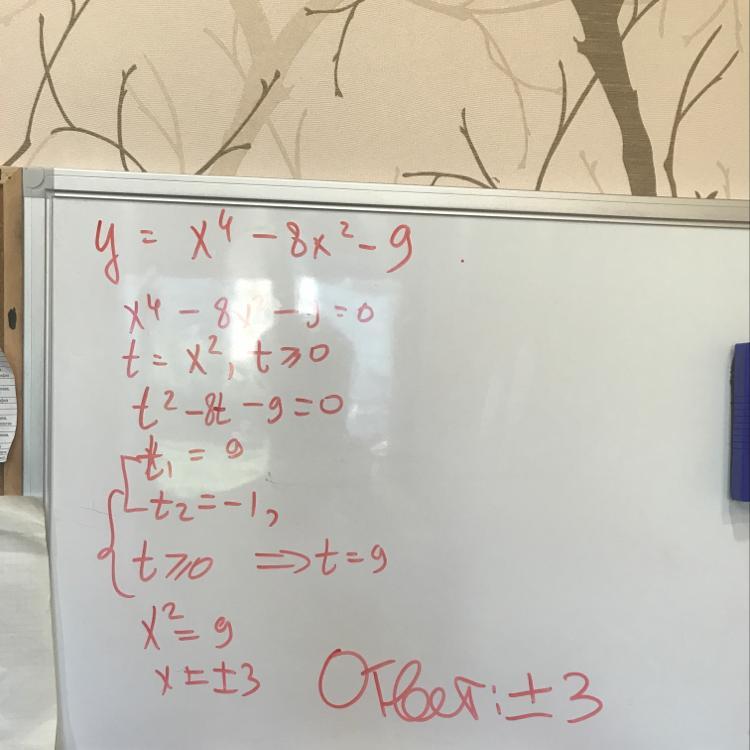 y = x⁴ - 8x² - 9
x⁴ - 8x² - 9 = 0
t = x², t ⩾ 0
t² - 8t - 9 = 0
t₁ = 9
t₂ = -1,
t ⩾ 0 ⇒ t = 9
x² = 9
x = ±3
Ответ: ±3